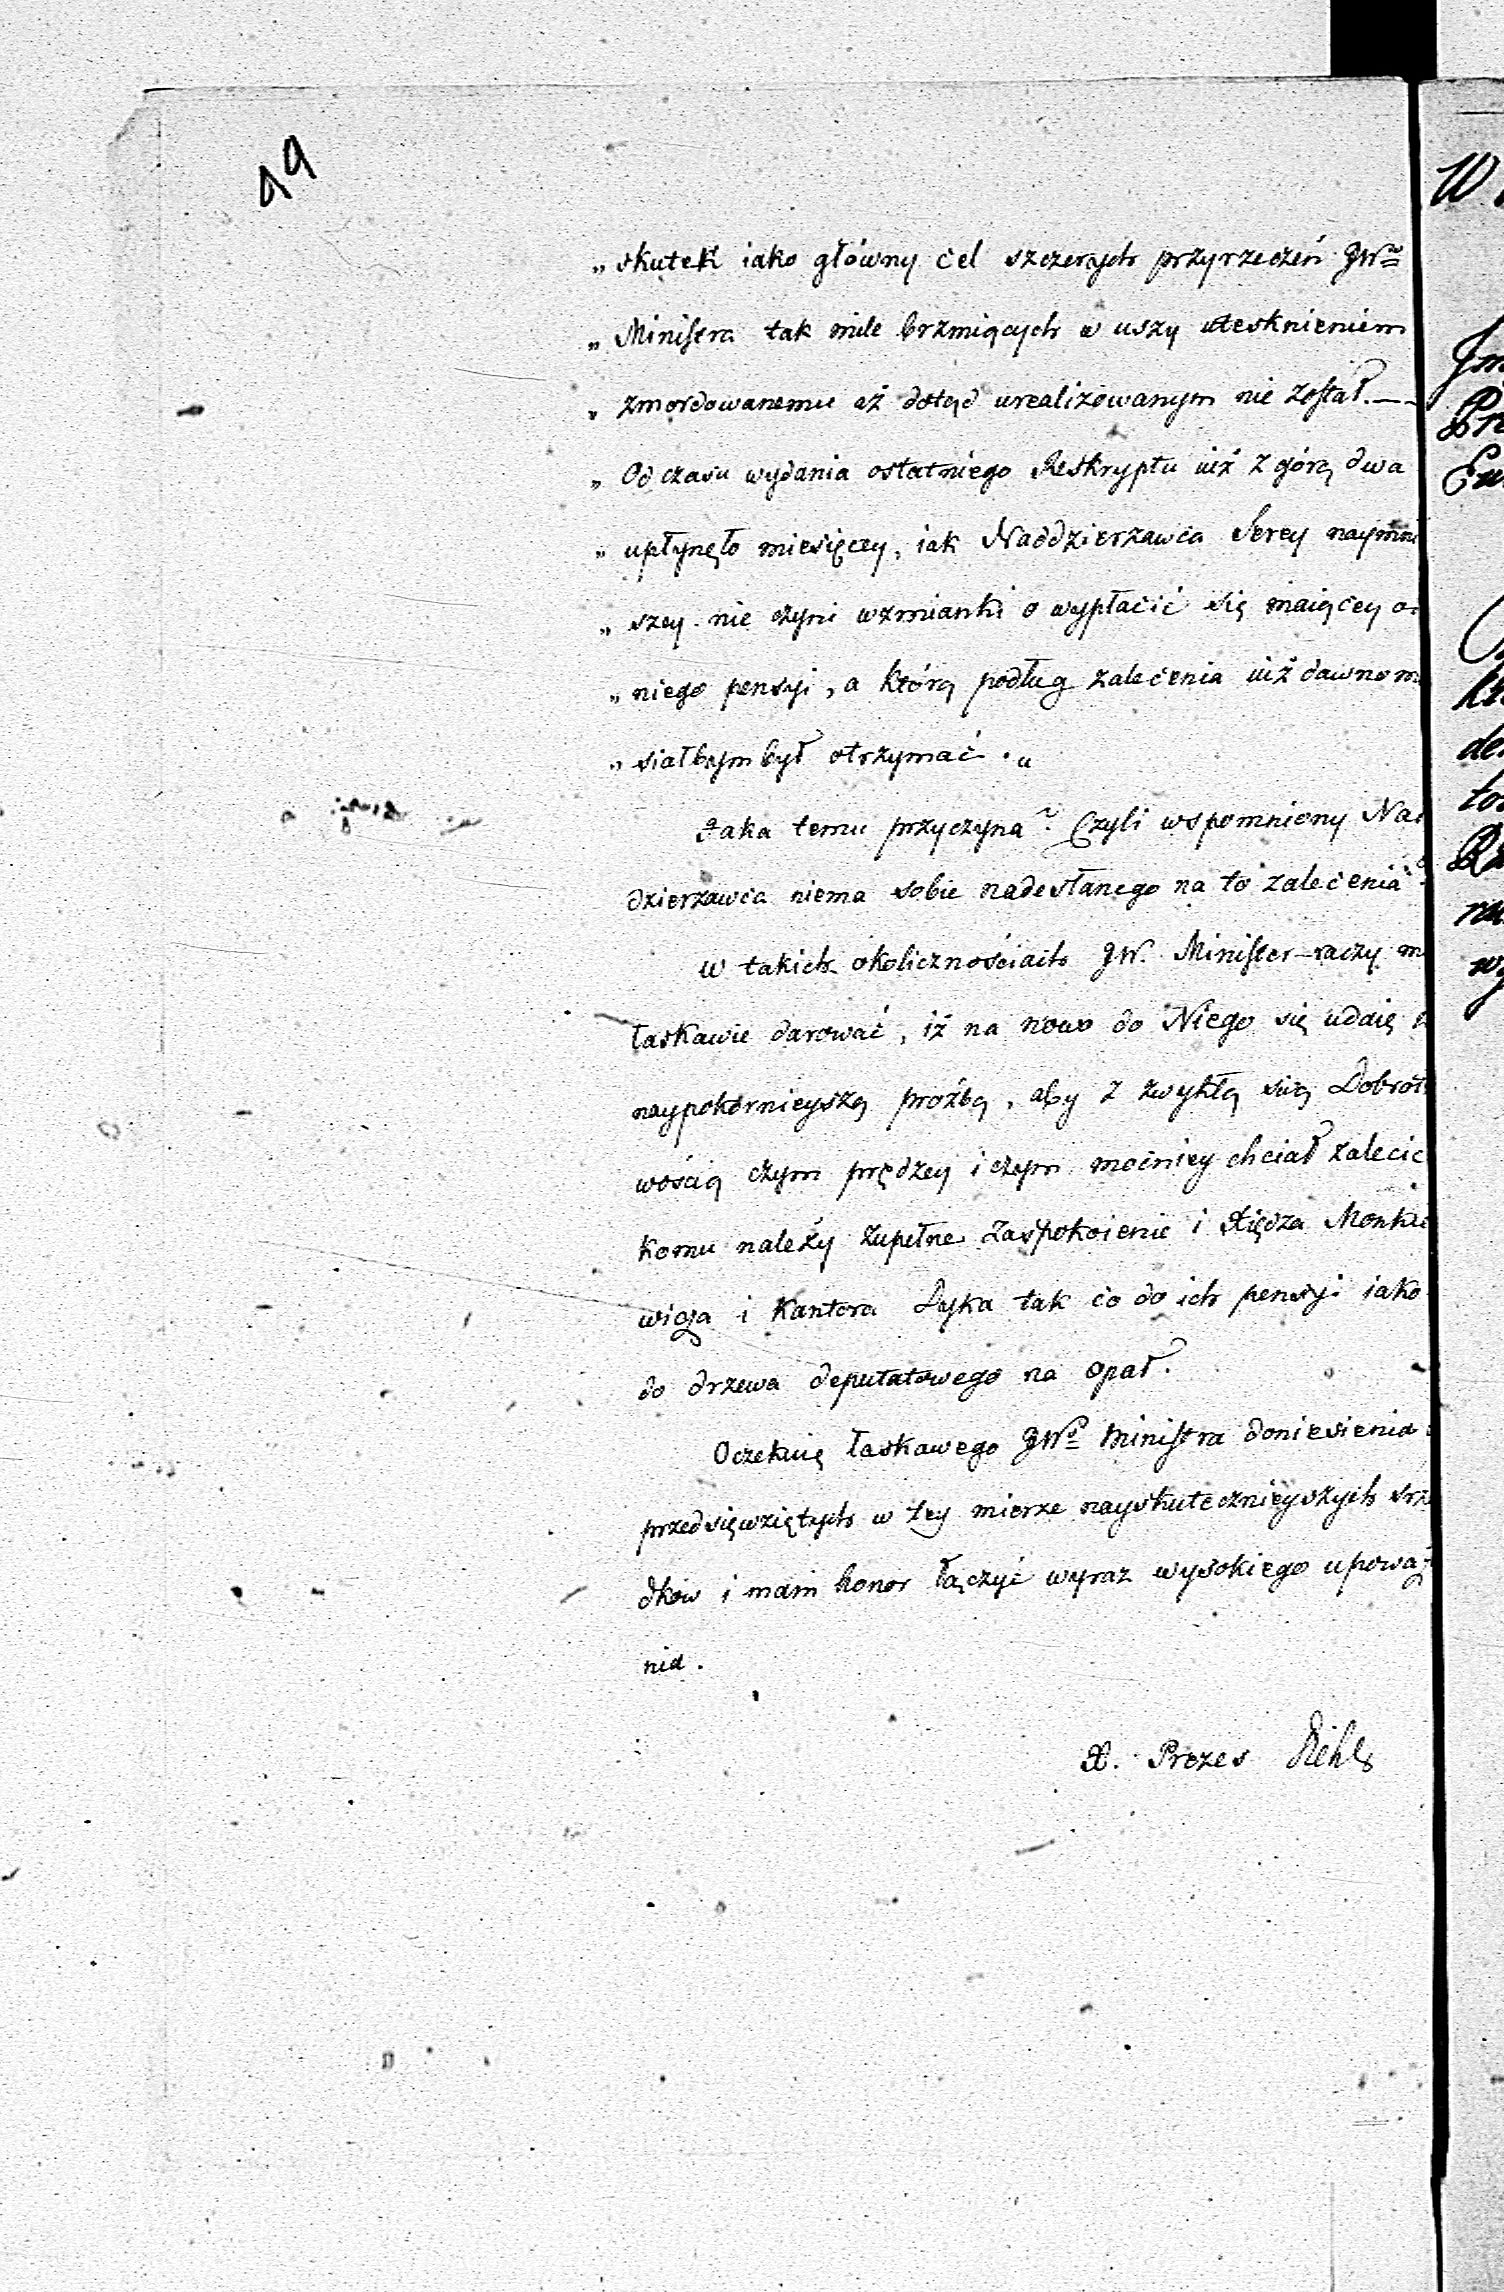 19
„ skutek iako główny cel szczerych przyrzeczeń JWo
„ Ministra tak mile brzmiących w uszy utesknieniem
„ zmordowanemu aż dotąd urealizowanym nie został. — —
„ Od czasu wydania ostatniego Reskryptu iuż z górą dwa
„ upłynęło miesięcy, iak Naddzierzawca Serey naymni
„ szey nie czyni wzmianki o wypłacić się maiącey o
„ niego pensyi, a którą podług zalecenia iuż dawnom
„ siałbym był otrzymać. „
Jaka temu przyczyna? Czyli wspomniony Na
dzierzawca niema sobie nadesłanego na to zalecenia?
W takich okolicznościach JW. Minister raczy m
łaskawie darować, iż na nowo do Niego się udaię
naypokornieyszą proźbą, aby z zwykłą swą Dobrot
wością czym prędzey i czym mocniey chciał zalecić
komu należy zupełne zaspokoienie i Xiędza Monkie
wicza i Kantora Dyka tak co do ich pensyi iako
do drzewa deputatowego na opał.
Oczekuię łaskawego JWo Ministra doniesienia
przedsięwziętych w tey mierze nayskutecznieyszych srz
dkow i mam honor łączyć wyraz wysokiego upoważ
nia.
X. Prezes Diehl
W
Pr
de
to
ra
wy